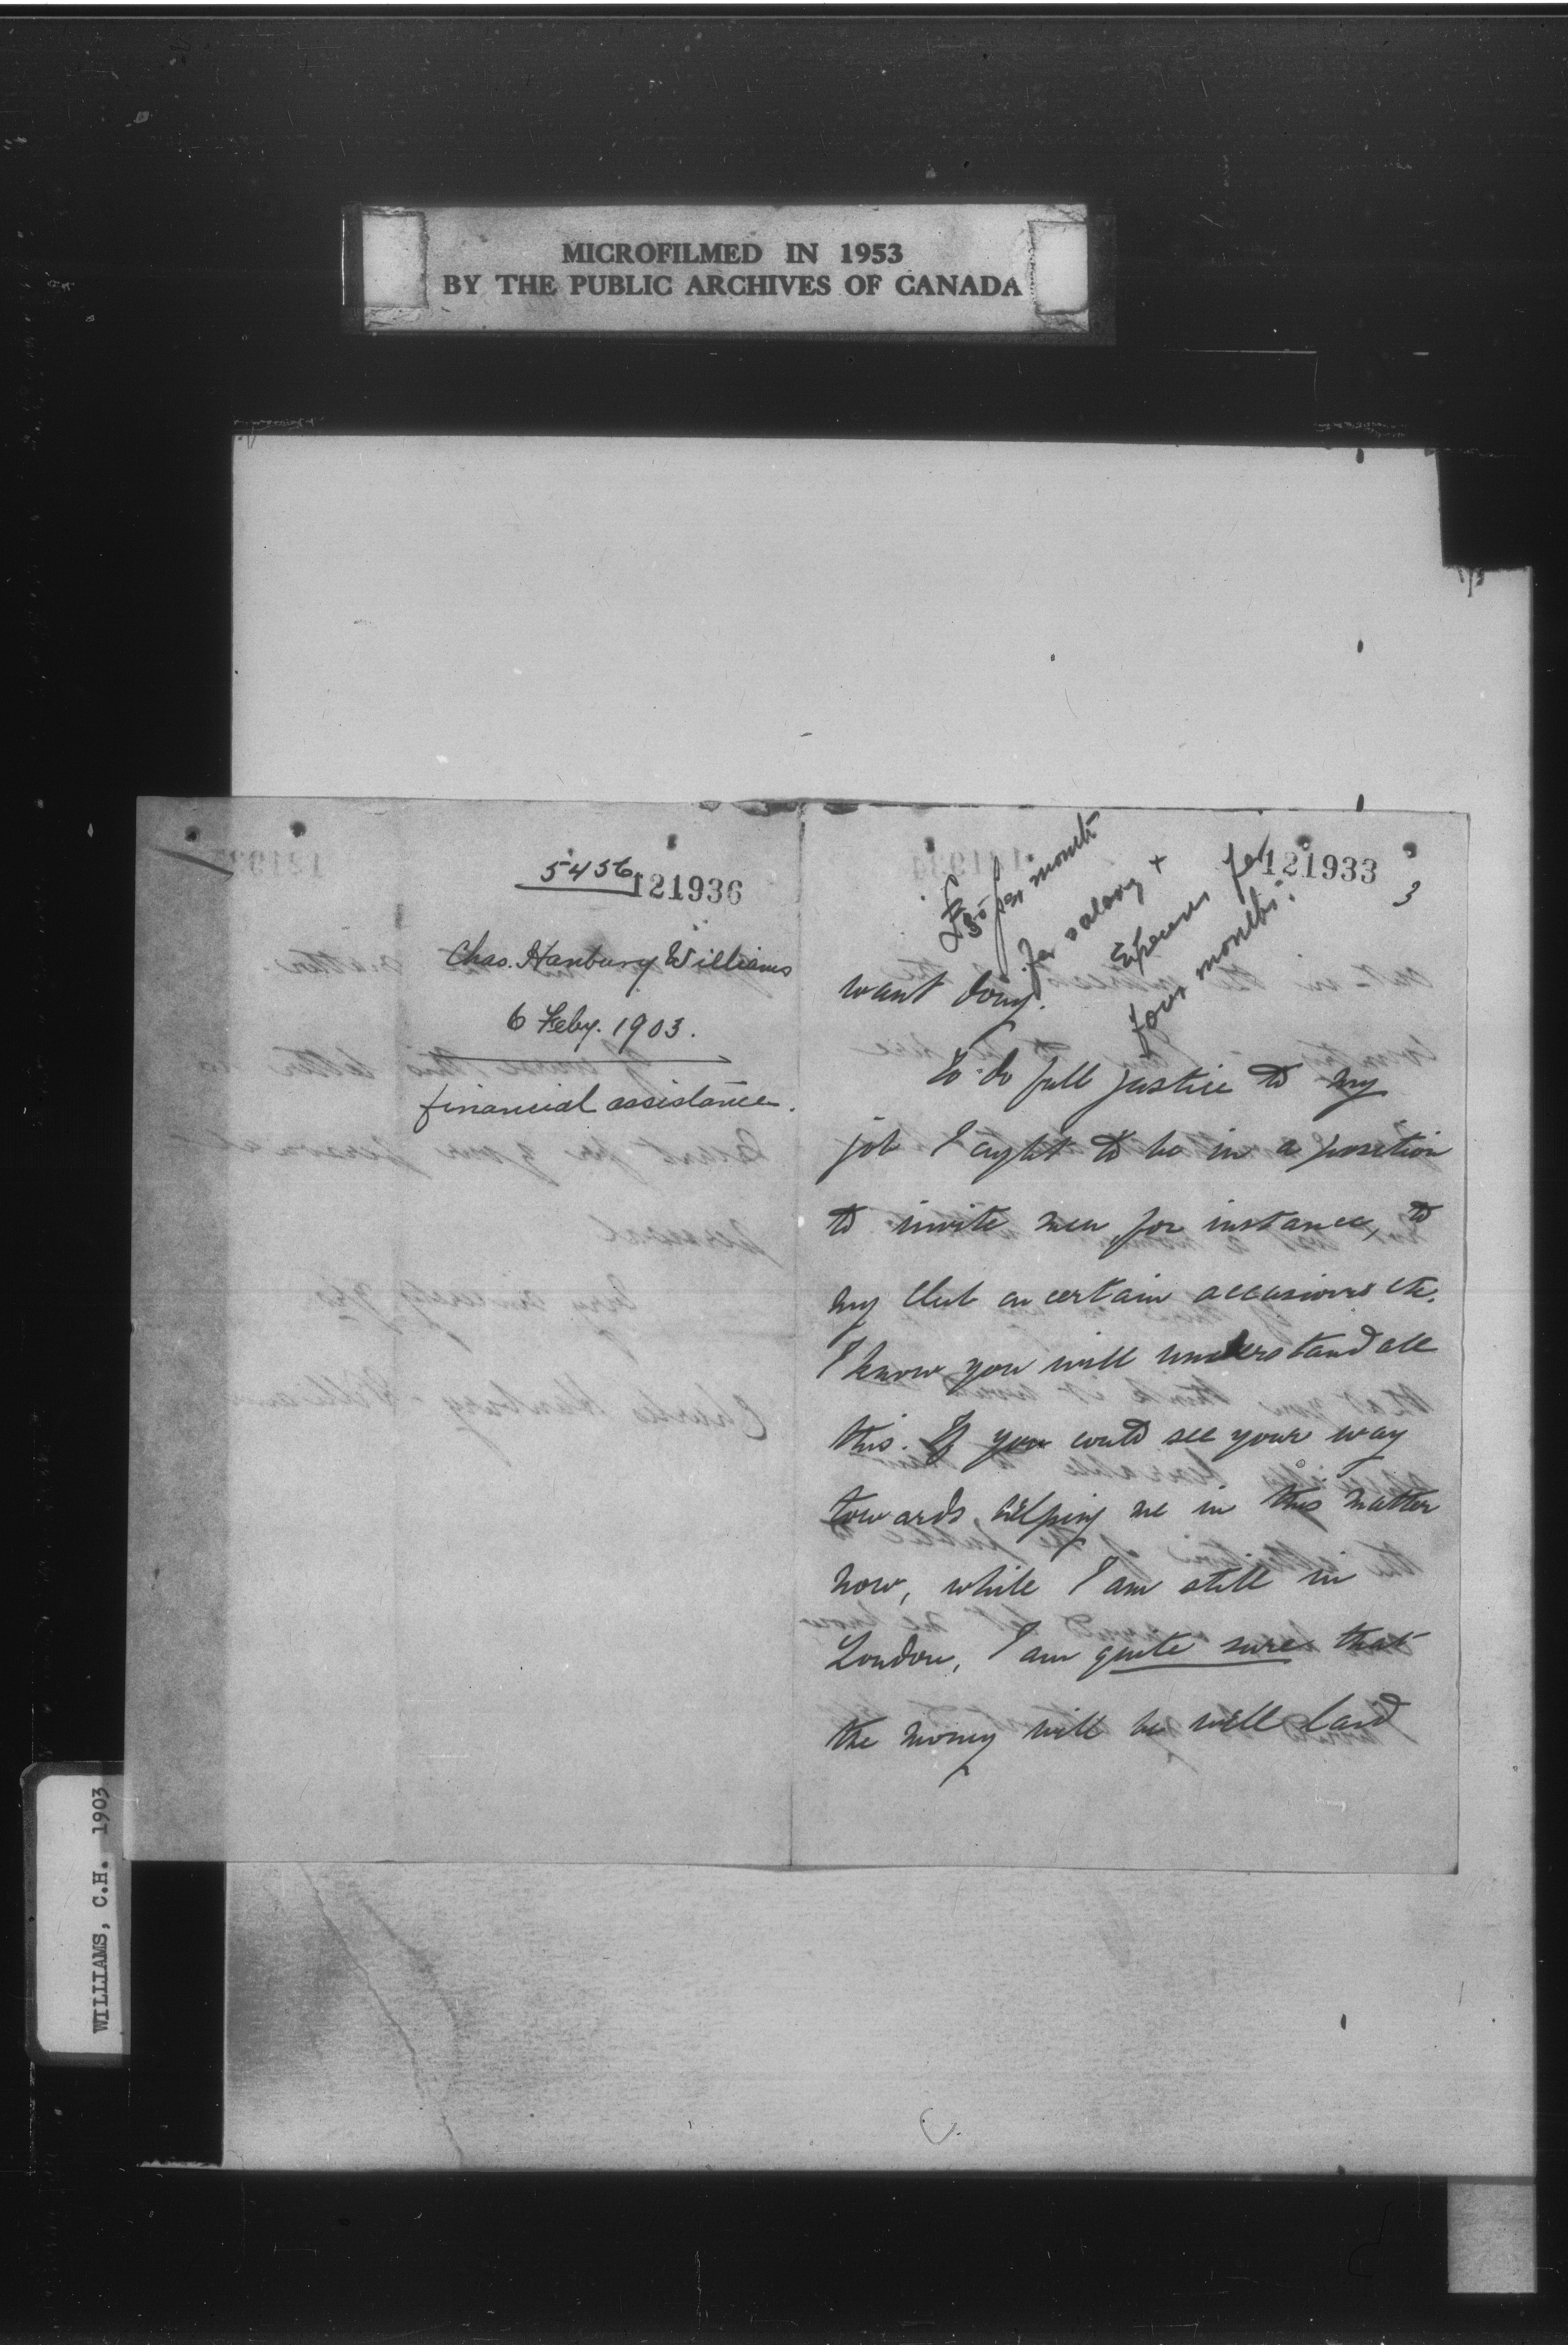 MICROFILMED IN 1953
BY THE PUBLIC ARCHIVES OF CANADA
5456
121936
Chas. Hanbury Williams
6 Feby. 1903.
financial assistance.
121933
3
per month
for salary +
Expenses for
four months.
want doing.
To do full justice to my
job I ought to be in a position
to invite men for instance, to
my Club on certain occasions etc.
I know you will understand all
this. If you could see your way
towards helping me in this matter
now, while I am still in
London, I am quite sure that
the money will be well laid
WILLIAMS, C.H. 1903